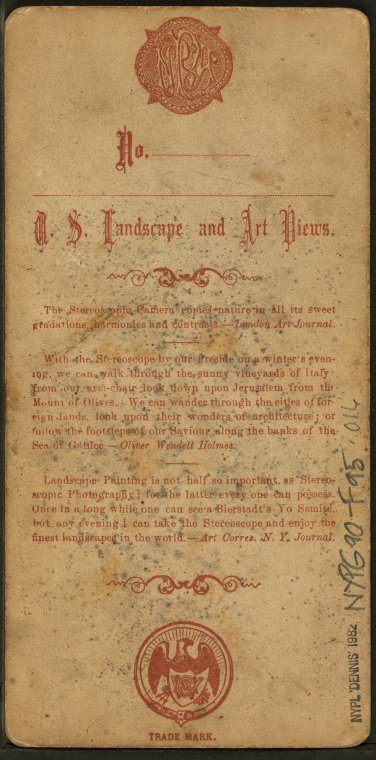 No.
U. S. Landscape and Art Views.
The Stereoscopic Camera copies nature in all its sweet
gradations, harmonies and contrasts.—London Art Journal.
With the Stereoscope by our fireside on a winter's even-
ing, we can walk through the sunny vineyards of Italy
from our arm-chair look down upon Jerusalem from the
Mount of Olives. We can wander through the cities of for-
eign lands, look upon their wonders of architecture; or
follow the footsteps of our Saviour along the banks of the
Sea of Galilee.—Oliver Wendell Holmes.
Landscape Painting is not half so important as Stereo-
scopic Photography; for the latter every one can possess.
Once in a long while one can see a Bierstadt's Yo Semite,
but, any evening I can take the Stereoscope and enjoy the
finest landscapes in the world.—Art Corres. N. Y. Journal.
TRADE MARK.
NYPL 'DENNIS' 1982 NYPG90-F95 .014